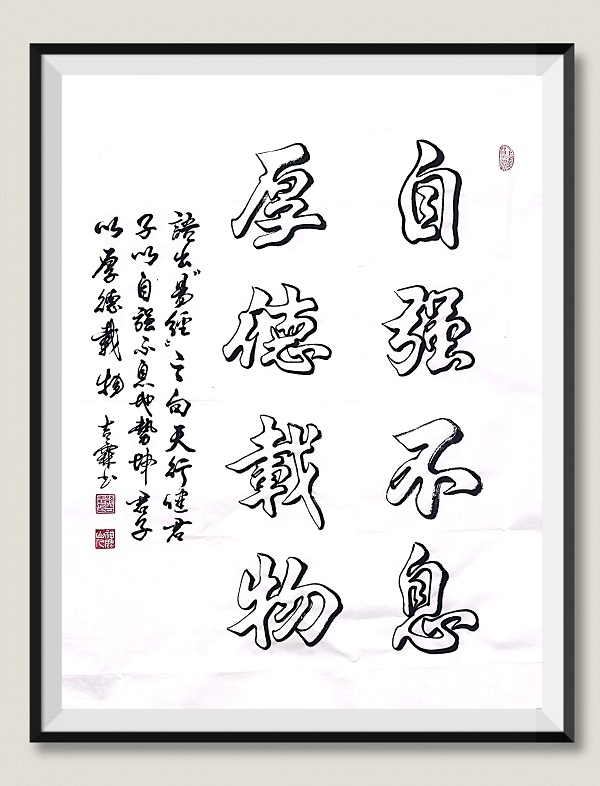 自强不息
厚德载物
語出《易經》之句天行健君
子以自强不息地勢坤君子
以厚德載物 吉霖书